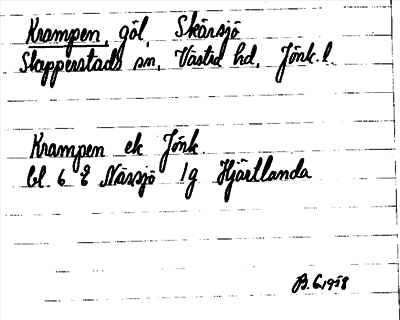 Krampen, göl, Skärsjö
Stapperstads sn, Västra hd, Jönk. l.
Krampen ek Jönk
bl. 6 E Nässjö 1g Hjärtlanda
B.G. 1958